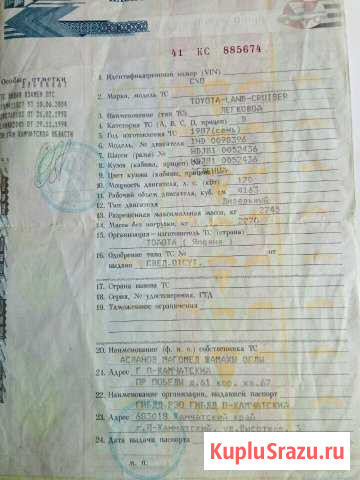 41 КС 885674
Особые отметки
1. Идентификационный номер (VIN)
2. Марка, модель ТС
TOYOTA-LAND-CRUISER
3. Наименование (тип ТС)
ЛЕГКОВОЙ
4. Категория ТС (А, В, С, D, прицеп)
B
5. Год изготовления ТС
1987(семь)
6. Модель, № двигателя
1HD 0070396
7. Шасси (рама) №
HDJ81 0052436
8. Кузов (кабина, прицеп) №
HDJ81 0052436
9. Цвет кузова (кабины, прицепа)
10. Мощность двигателя, л. с. (кВт)
170
11. Рабочий объем двигателя, куб. см
4163
12. Тип двигателя
Дизельный
13. Разрешенная максимальная масса, кг
2745
14. Масса без нагрузки, кг
15. Организация - изготовитель ТС (страна)
ТОЙОТА ( Япония )
16. Одобрение типа ТС № от
выдано СВЕД.ОТСУТ.
17. Страна вывоза ТС
18. Серия, № удостоверения, ГТД
19. Таможенные ограничения
20. Наименование (ф. и. о.) собственника ТС
АСЛАНОВ МАГОМЕД ЖАМАХЫ ОГЛЫ
21. Адрес Г П-КАМЧАТСКИЙ
ПР ПОБЕДЫ д.61 кор. кв.67
22. Наименование организации, выдавшей паспорт
ГИБДД РЭО ГИБДД П-КАМЧАТСКИЙ
23. Адрес 683019 Камчатский край
г.П-Камчатский, ул.Высотная 3
24. Дата выдачи паспорта
м. п.
KupluSrazu.ru